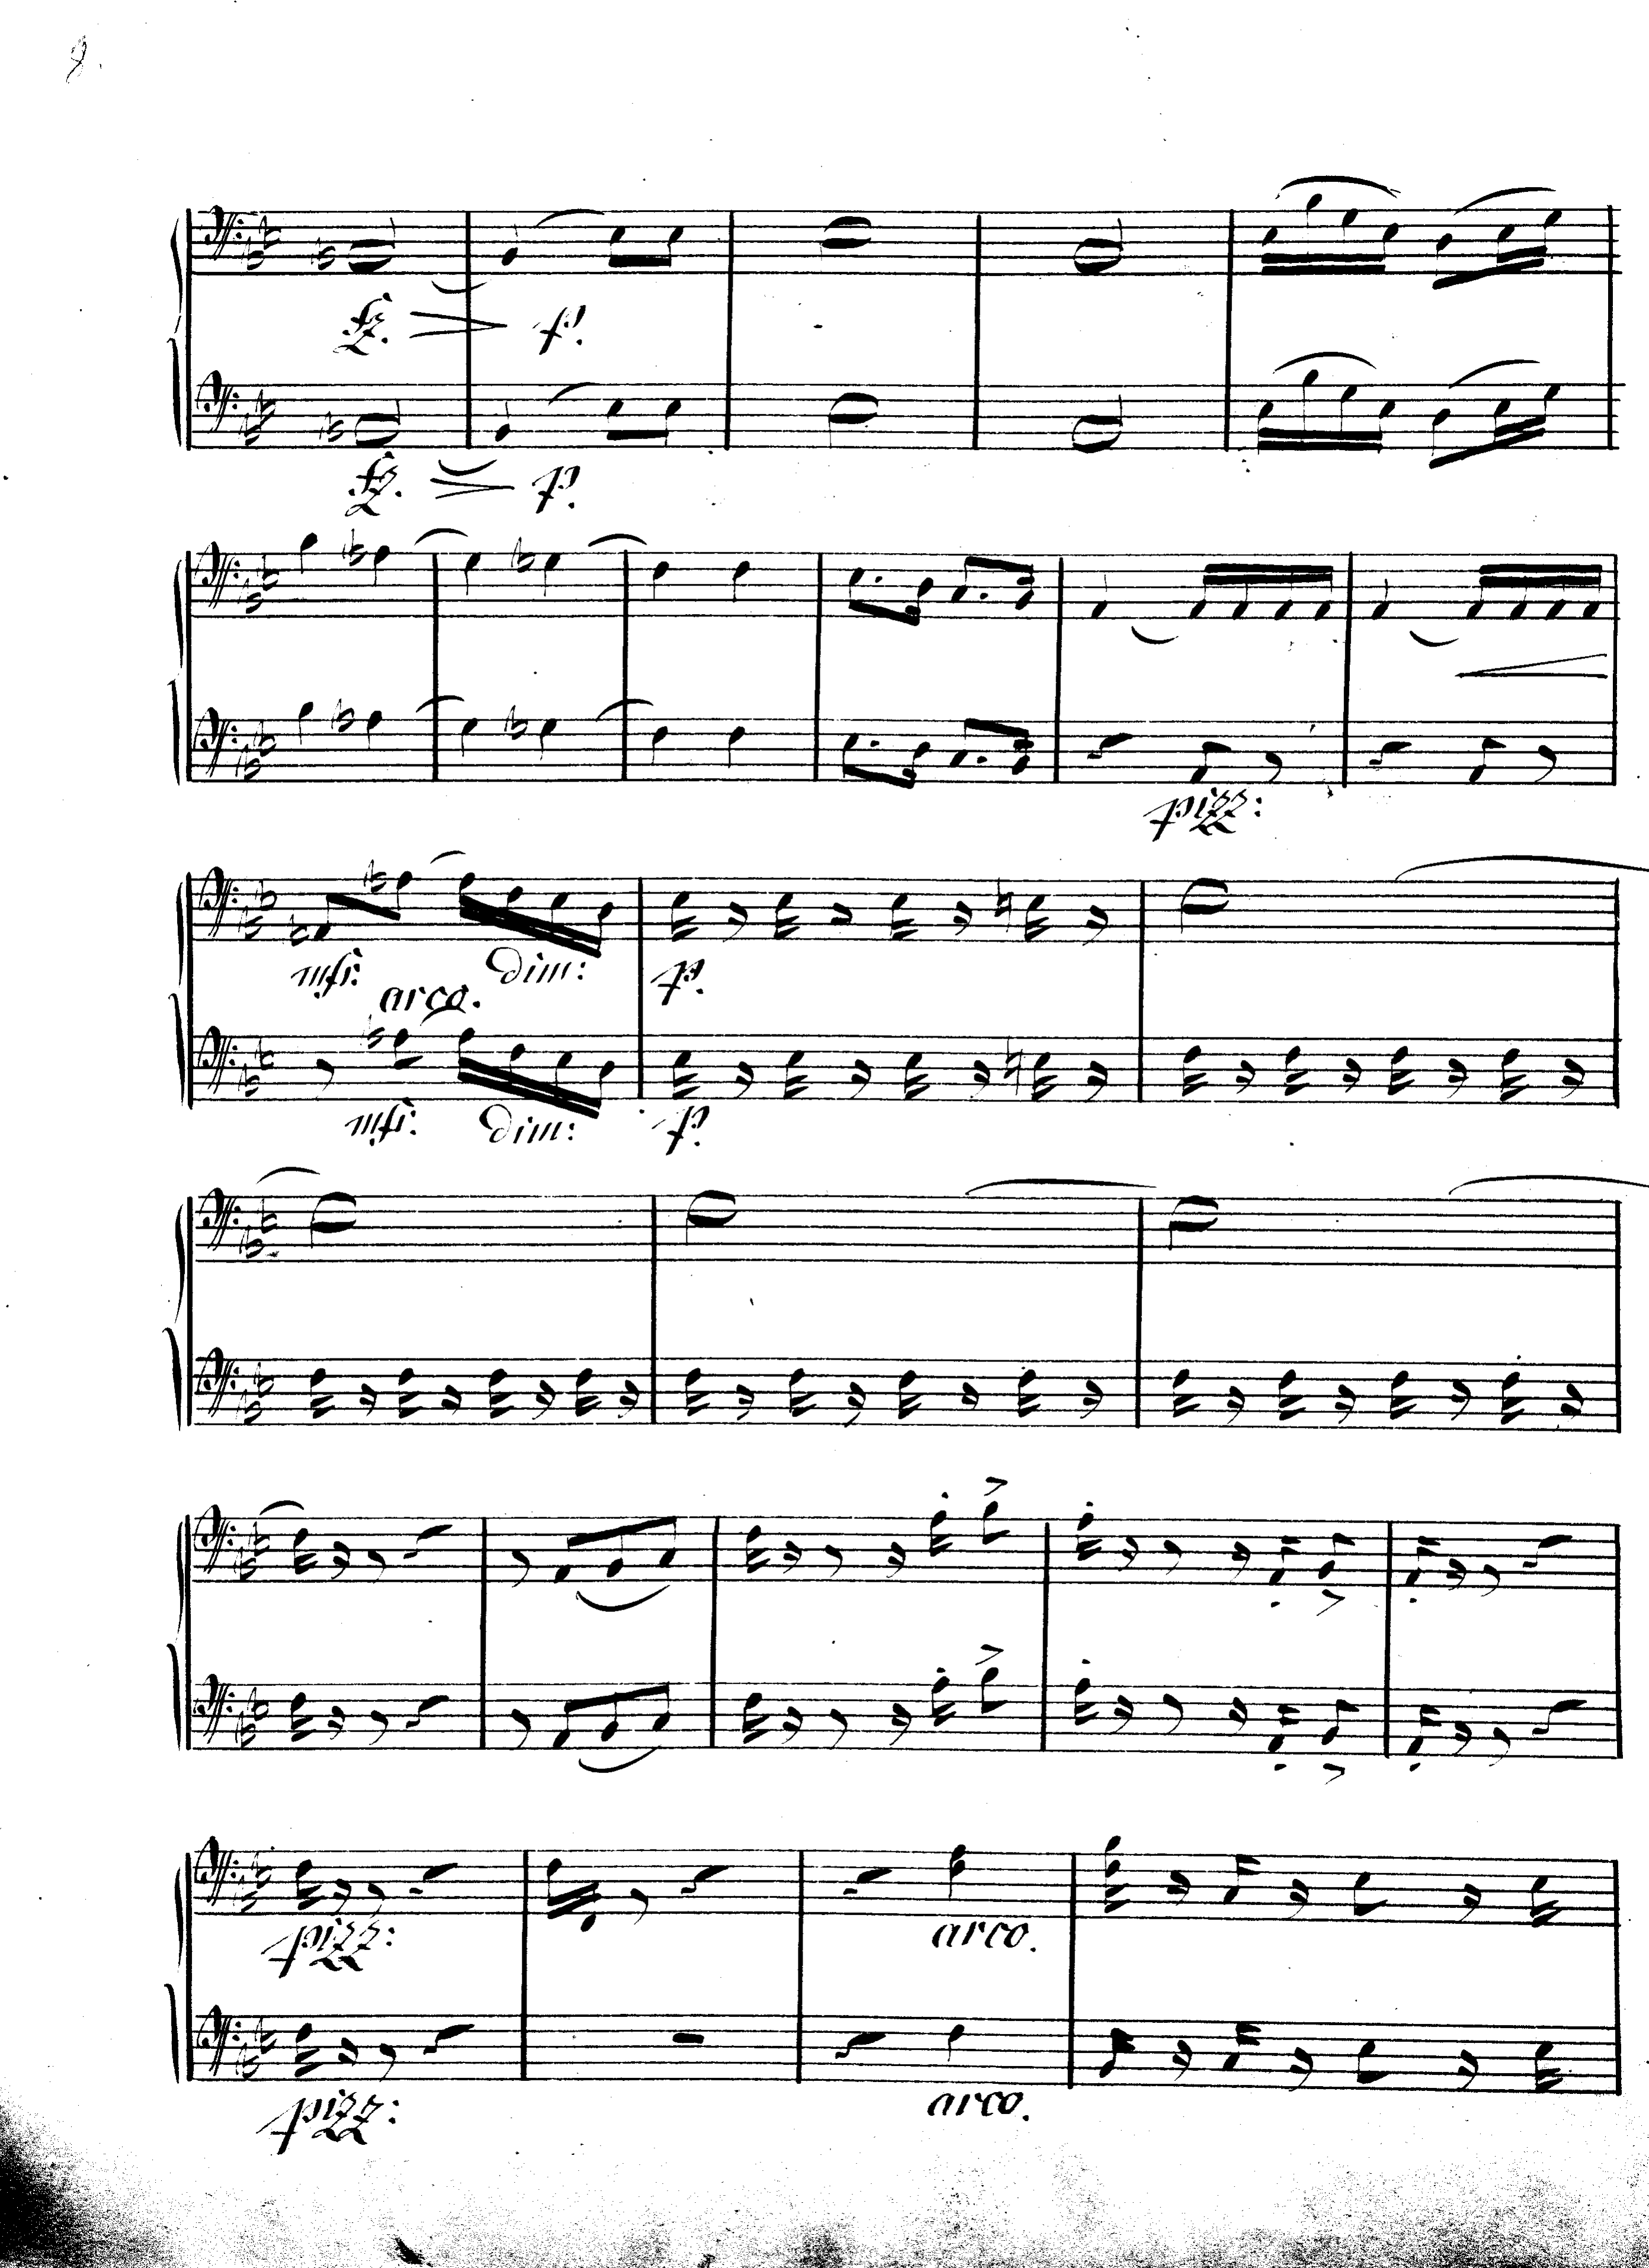 fz. p.
fz. p.
pizz:
mf. dim: p.
arco.
mf. dim: p.
pizz: arco.
pizz: arco.